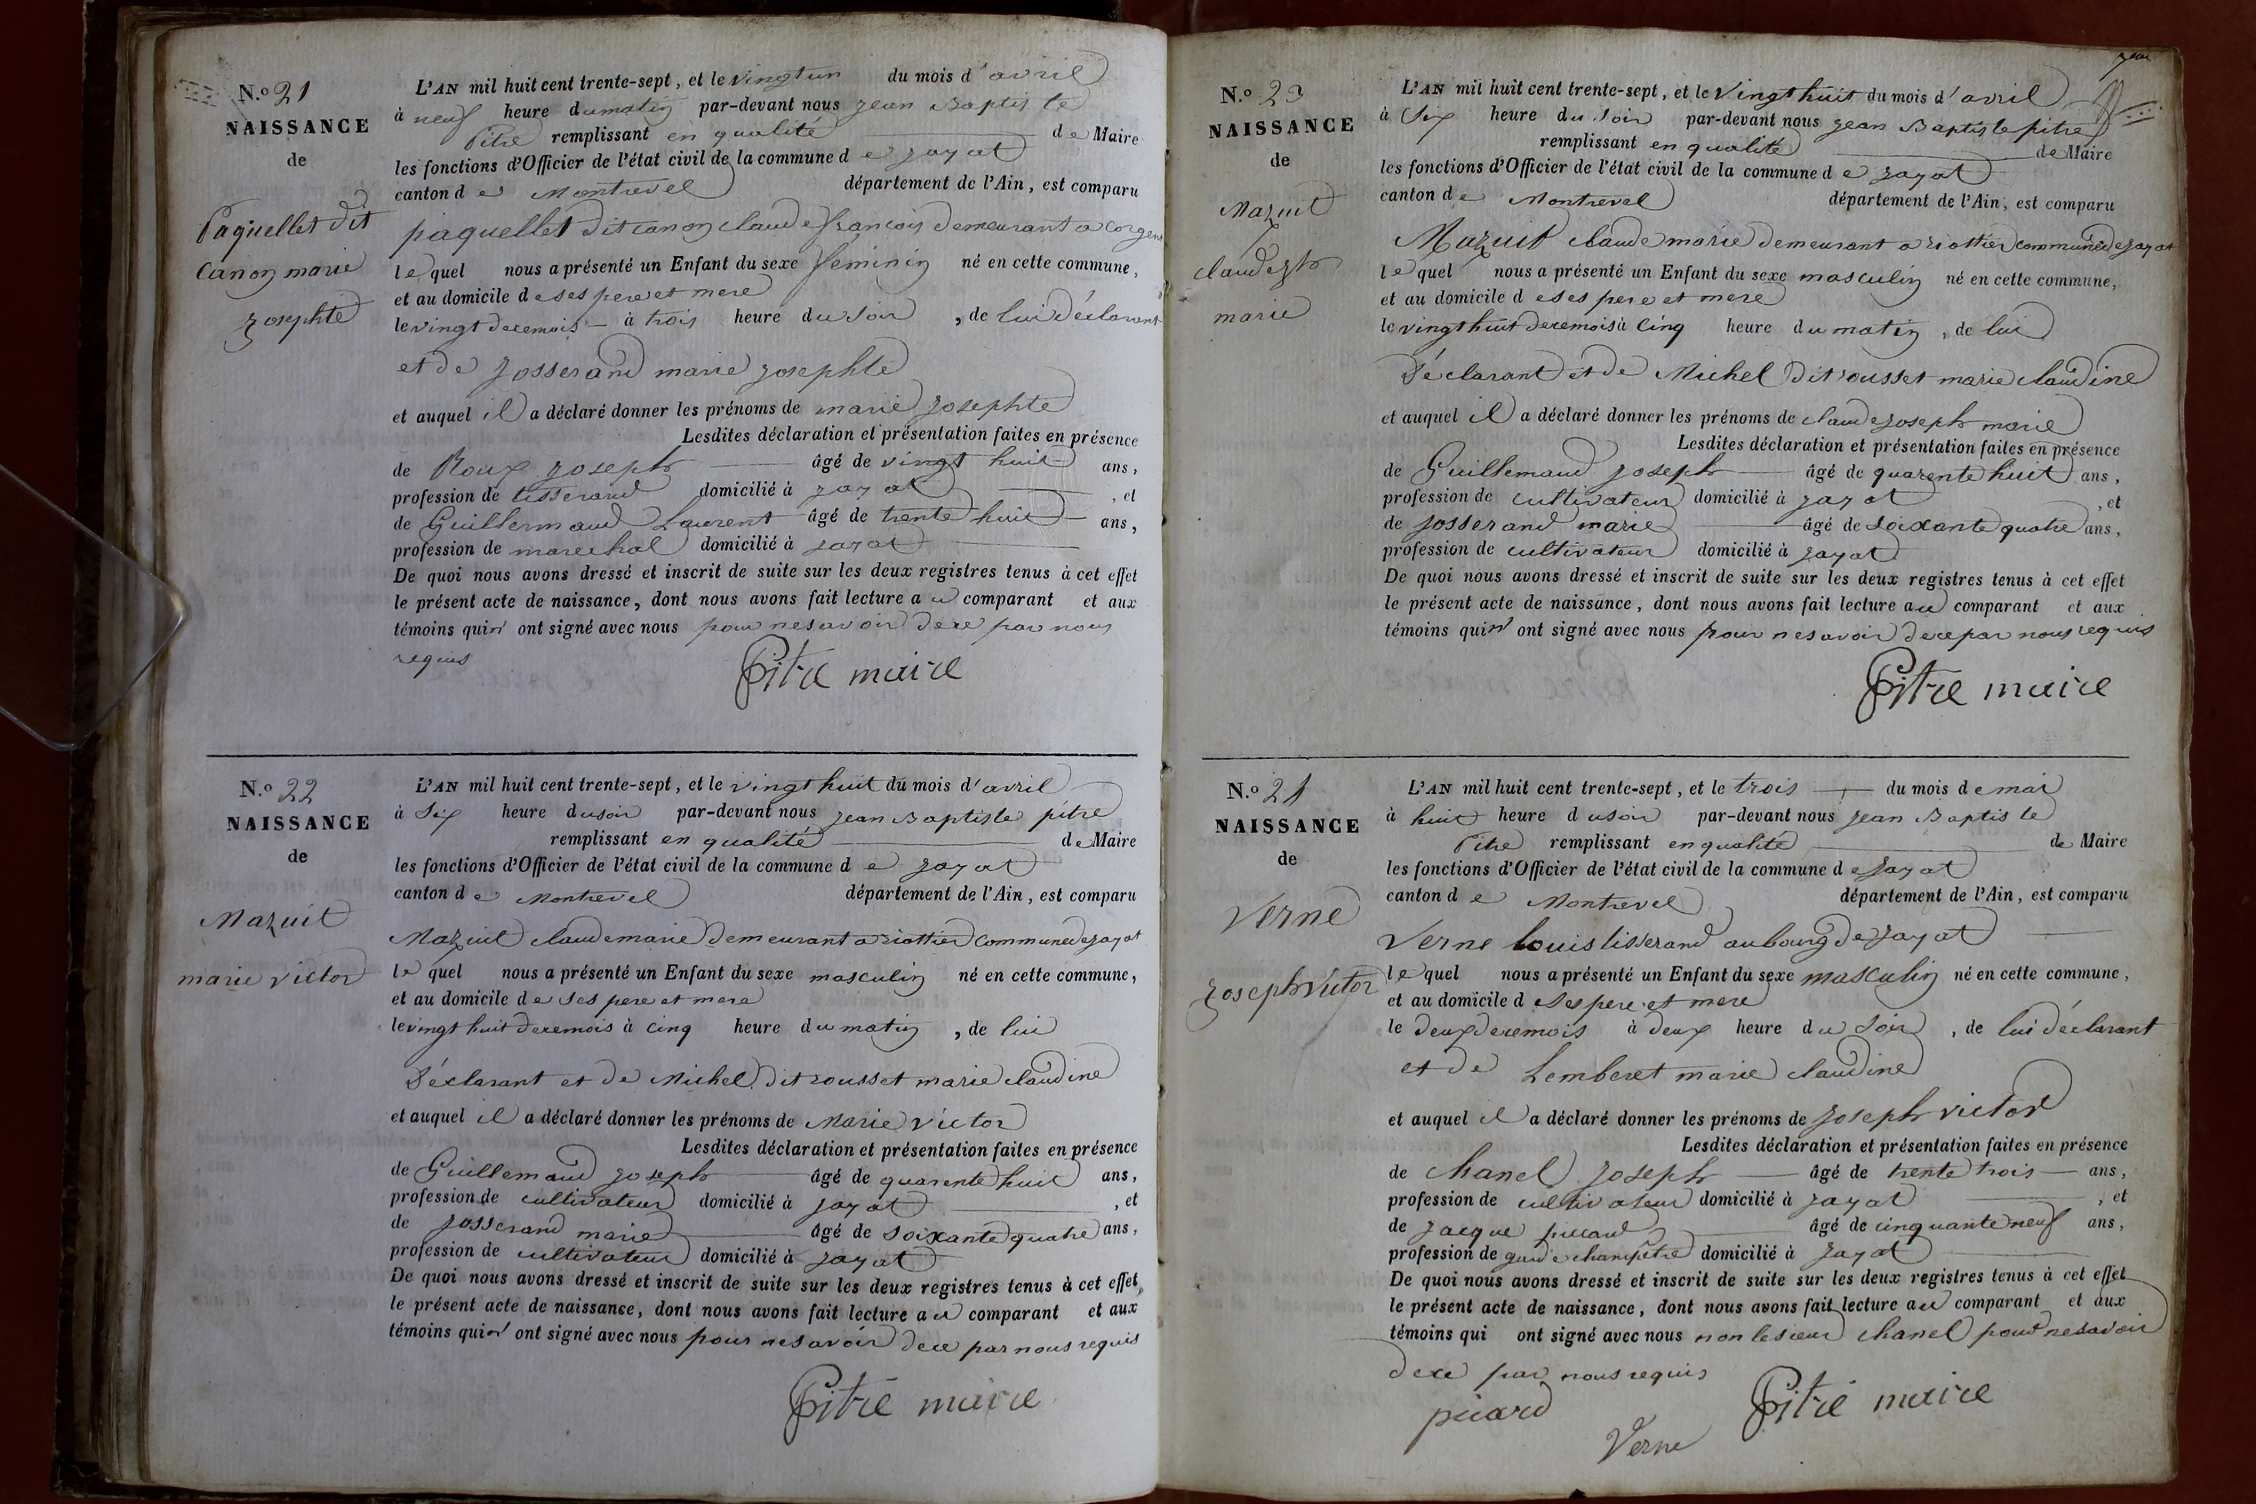 N.o 21
NAISSANCE
de
Paquellet dit
Canon marie
josephte
L'AN mil huit cent trente-sept, et le vingt un du mois d'avril
à neuf heure du matin par-devant nous jean Baptiste
Pitre remplissant en qualité de Maire
les fonctions d'Officier de l'état civil de la commune de jayat
canton de Montrevel département de l'Ain, est comparu
paquellet dit canon claude françois demeurant a Corgent
lequel nous a présenté un Enfant du sexe feminin né en cette commune,
et au domicile de ses pere et mere
le vingt de ce mois à trois heure du soir, de lui déclarant
et de Josserand marie josephte
et auquel il a déclaré donner les prénoms de marie josephte
Lesdites déclaration et présentation faites en présence
de Roux joseph âgé de vingt huit ans,
profession de tisserand domicilié à jayat, et
de Guillermaud Laurent âgé de trente huit ans,
profession de marechal domicilié à jayat
De quoi nous avons dressé et inscrit de suite sur les deux registres tenus à cet effet
le présent acte de naissance, dont nous avons fait lecture au comparant et aux
témoins qui n'ont signé avec nous pour ne savoir de ce par nous
requis
Pitre maire
N.o 22
NAISSANCE
de
Mazuit
marie victor
L'AN mil huit cent trente-sept, et le vingt huit du mois d'avril
à six heure du soir par-devant nous jean Baptiste pitre
remplissant en qualité de Maire
les fonctions d'Officier de l'état civil de la commune de jayat
canton de Montrevel département de l'Ain, est comparu
Mazuit claude marie demeurant a riottier commune de jayat
lequel nous a présenté un Enfant du sexe masculin né en cette commune,
et au domicile de ses pere et mere
le vingt huit de ce mois à cinq heure du matin, de lui
Déclarant et de Michel dit rousset marie claudine
et auquel il a déclaré donner les prénoms de Marie victor
Lesdites déclaration et présentation faites en présence
de Guillemaud joseph âgé de quarente huit ans,
profession de cultivateur domicilié à jayat, et
de josserand marie âgé de soixante quatre ans,
profession de cultivateur domicilié à jayat
De quoi nous avons dressé et inscrit de suite sur les deux registres tenus à cet effet,
le présent acte de naissance, dont nous avons fait lecture au comparant et aux
témoins qui n'ont signé avec nous pour ne savoir de ce par nous requis
Pitre maire
N.o 23
NAISSANCE
de
Mazuit
claude jph
marie
L'AN mil huit cent trente-sept, et le vingt huit du mois d'avril
à six heure du soir par-devant nous jean Baptiste pitre
remplissant en qualité de Maire
les fonctions d'Officier de l'état civil de la commune de jayat
canton de Montrevel département de l'Ain, est comparu
Mazuit claude marie demeurant a riottier commune de jayat
lequel nous a présenté un Enfant du sexe masculin né en cette commune,
et au domicile de ses pere et mere
le vingt huit de ce mois à cinq heure du matin, de lui
Déclarant et de Michel dit rousset marie claudine
et auquel il a déclaré donner les prénoms de claude joseph marie
Lesdites déclaration et présentation faites en présence
de Guillemaud joseph âgé de quarente huit ans,
profession de cultivateur domicilié à jayat, et
de josserand marie âgé de soixante quatre ans,
profession de cultivateur domicilié à jayat
De quoi nous avons dressé et inscrit de suite sur les deux registres tenus à cet effet
le présent acte de naissance, dont nous avons fait lecture au comparant et aux
témoins qui n'ont signé avec nous pour ne savoir de ce par nous requis
Pitre maire
N.o 24
NAISSANCE
de
Verne
joseph victor
L'AN mil huit cent trente-sept, et le trois du mois de mai
à huit heure du soir par-devant nous jean Baptiste
Pitre remplissant en qualité de Maire
les fonctions d'Officier de l'état civil de la commune de jayat
canton de Montrevel département de l'Ain, est comparu
Verne louis tisserand au bourg de jayat
lequel nous a présenté un Enfant du sexe masculin né en cette commune,
et au domicile de ses pere et mere
le deux de ce mois à deux heure du soir, de lui déclarant
et de Lemberet marie claudine
et auquel il a déclaré donner les prénoms de joseph victor
Lesdites déclaration et présentation faites en présence
de chanel joseph âgé de trente trois ans,
profession de cultivateur domicilié à jayat, et
de jacque piccard âgé de cinquante neuf ans,
profession de garde champêtre domicilié à jayat
De quoi nous avons dressé et inscrit de suite sur les deux registres tenus à cet effet
le présent acte de naissance, dont nous avons fait lecture au comparant et aux
témoins qui ont signé avec nous non le sieur chanel pour ne savoir
de ce par nous requis
picard
Verne
Pitre maire